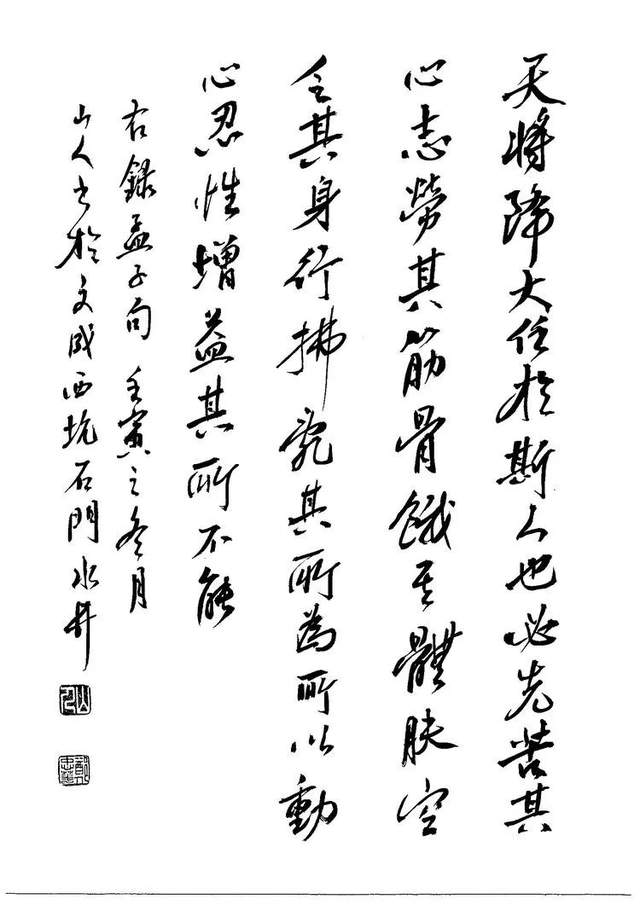 天将降大任於斯人也必先苦其
心志勞其筋骨餓其體膚空
乏其身行拂乱其所為所以動
心忍性增益其所不能
右録孟子句 壬寅之冬月
山人书於文成西坑石門水井
山人